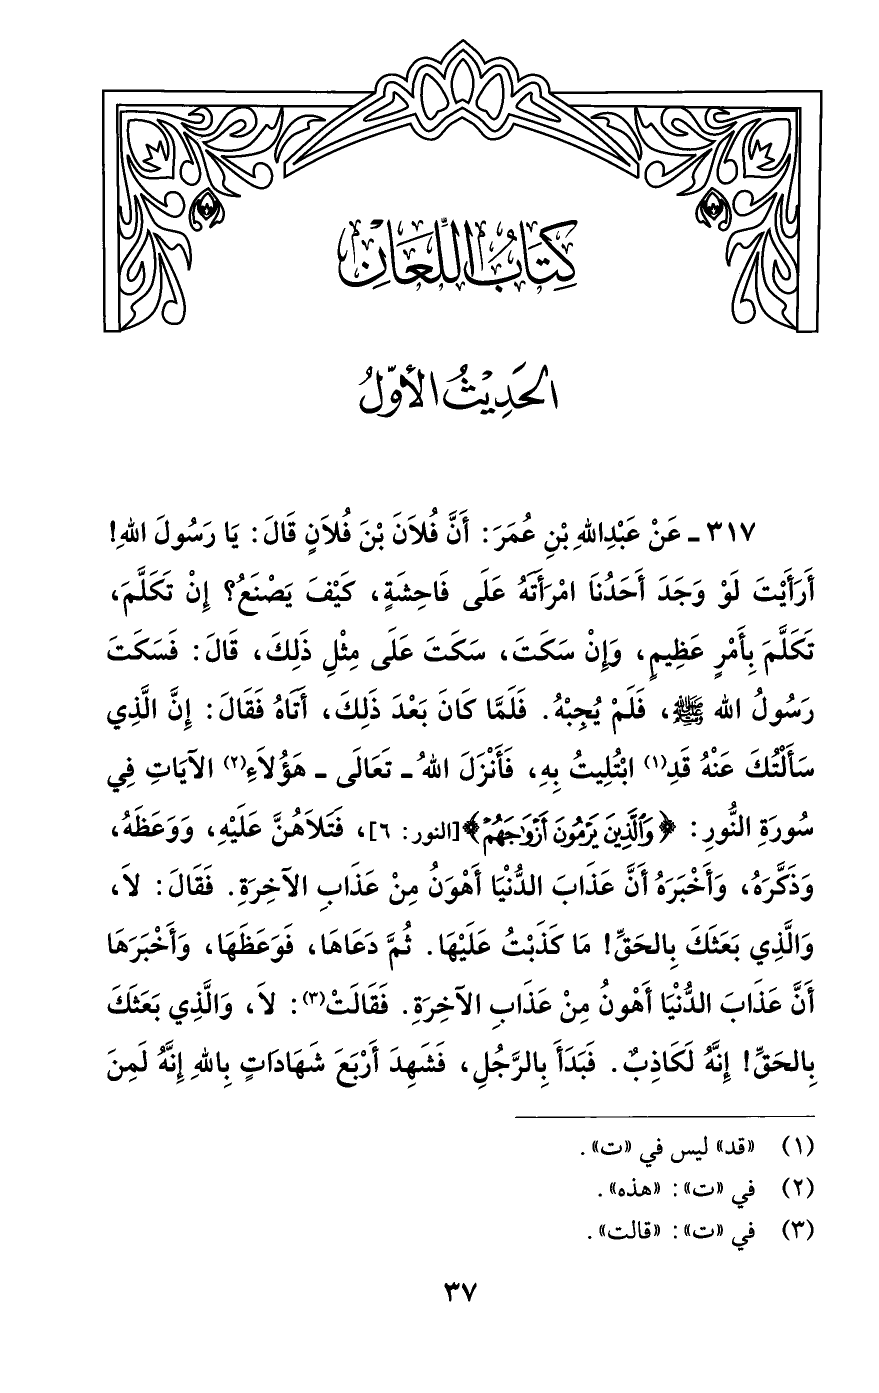 كِتَابُ اللِّعَانِ
الحَدِيْثُ الأَوَّلُ
٣١٧ ـ عَنْ عَبْدِاللهِ بْنِ عُمَرَ: أَنَّ فُلاَنَ بْنَ فُلاَنٍ قَالَ: يَا رَسُولَ اللهِ!
أَرَأَيْتَ لَوْ وَجَدَ أَحَدُنَا امْرَأَتَهُ عَلَى فَاحِشَةٍ، كَيْفَ يَصْنَعُ؟ إِنْ تَكَلَّمَ،
تَكَلَّمَ بِأَمْرٍ عَظِيمٍ، وَإِنْ سَكَتَ، سَكَتَ عَلَى مِثْلِ ذَلِكَ، قَالَ: فَسَكَتَ
رَسُولُ الله ﷺ، فَلَمْ يُجِبْهُ. فَلَمَّا كَانَ بَعْدَ ذَلِكَ، أَتَاهُ فَقَالَ: إِنَّ الَّذِي
سَأَلْتُكَ عَنْهُ قَدِ(١) ابْتُلِيتُ بِهِ، فَأَنْزَلَ اللهُ ـ تَعَالَى ـ هَؤُلاَءِ(٢) الآيَاتِ فِي
سُورَةِ النُّورِ: ﴿وَٱلَّذِينَ يَرْمُونَ أَزْوَٰجَهُمْ﴾[النور: ٦]، فَتَلاَهُنَّ عَلَيْهِ، وَوَعَظَهُ،
وَذَكَّرَهُ، وَأَخْبَرَهُ أَنَّ عَذَابَ الدُّنْيَا أَهْوَنُ مِنْ عَذَابِ الآخِرَةِ. فَقَالَ: لاَ،
وَالَّذِي بَعَثَكَ بِالحَقِّ! مَا كَذَبْتُ عَلَيْهَا. ثُمَّ دَعَاهَا، فَوَعَظَهَا، وَأَخْبَرَهَا
أَنَّ عَذَابَ الدُّنْيَا أَهْونُ مِنْ عَذَابِ الآخِرَةِ. فَقَالَتْ(٣): لاَ، وَالَّذِي بَعَثَكَ
بِالحَقِّ! إِنَّهُ لَكَاذِبٌ. فَبَدَأَ بِالرَّجُلِ، فَشَهِدَ أَرْبَعَ شَهَادَاتٍ بِاللهِ إِنَّهُ لَمِنَ
(١) «قد» ليس في «ت».
(٢) في «ت»: «هذه».
(٣) في «ت»: «قالت».
٣٧